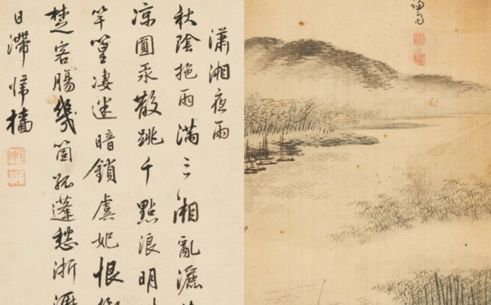 瀟湘夜雨
秋陰拖雨滿三湘亂灑
涼圓汞散跳千點浪明
竿篁凄迷暗鎖虞妃恨
楚客腸幾箇孤蓬愁淅
日滯帰檣